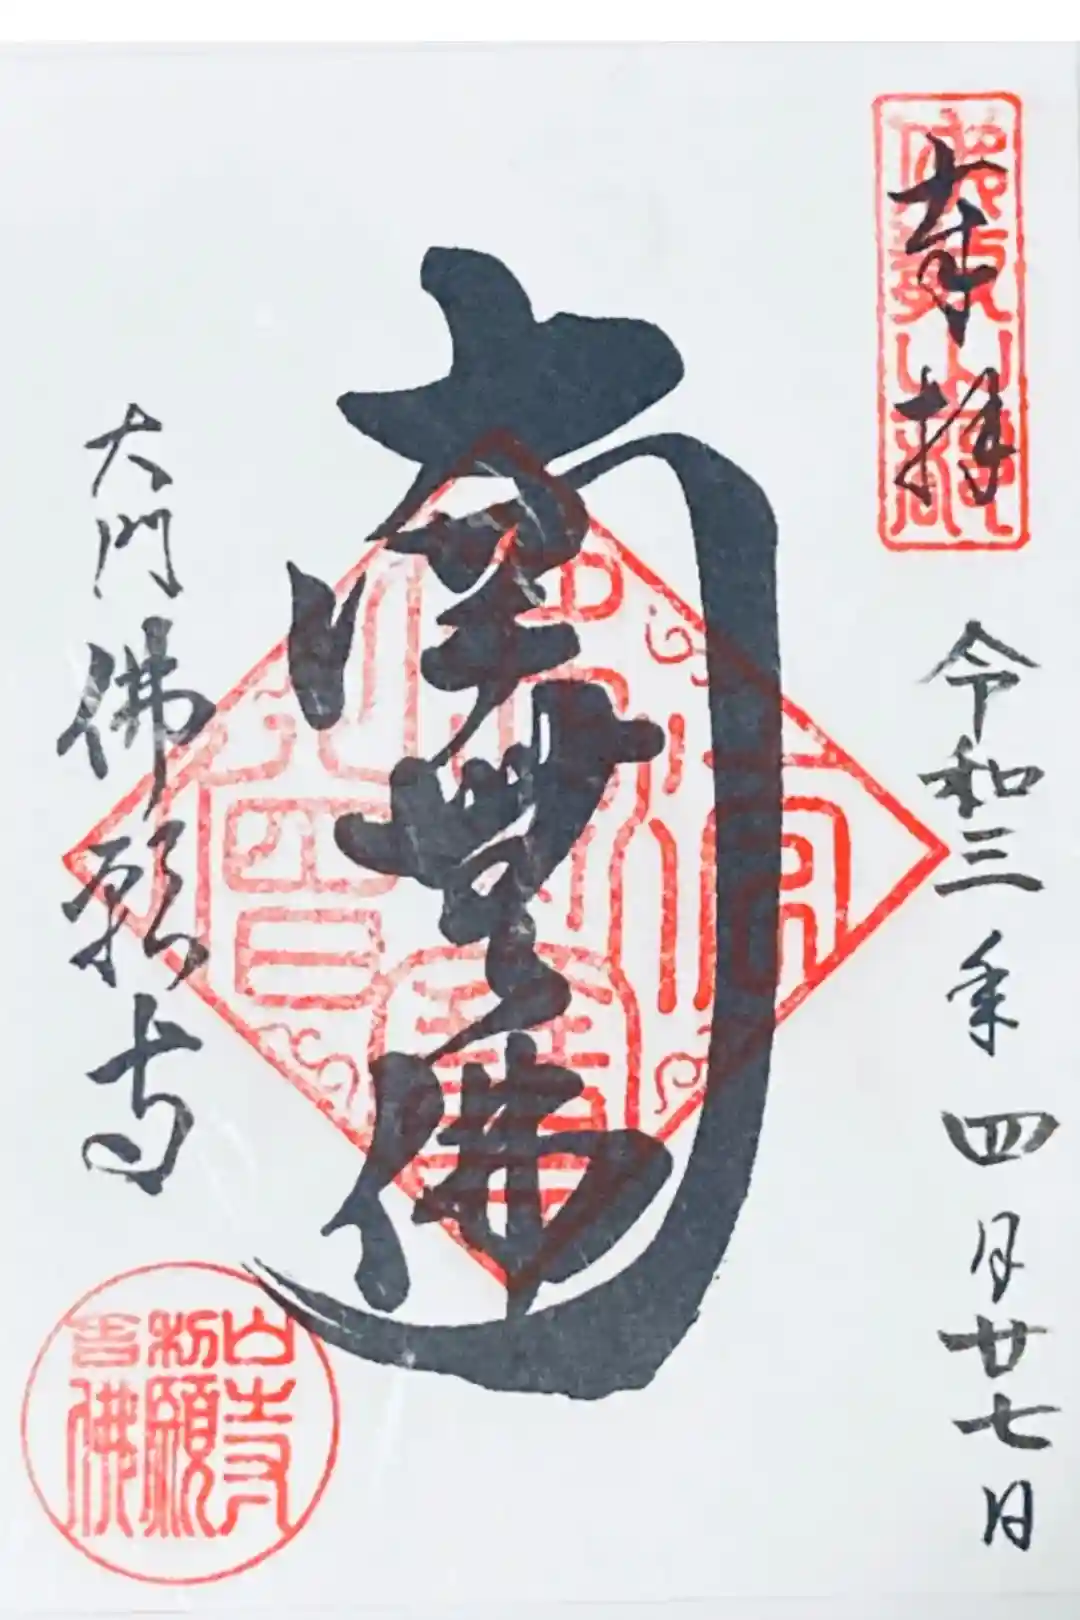 奉拝
令和三年四月廿七日
南無佛
大門佛願寺
佛願寺